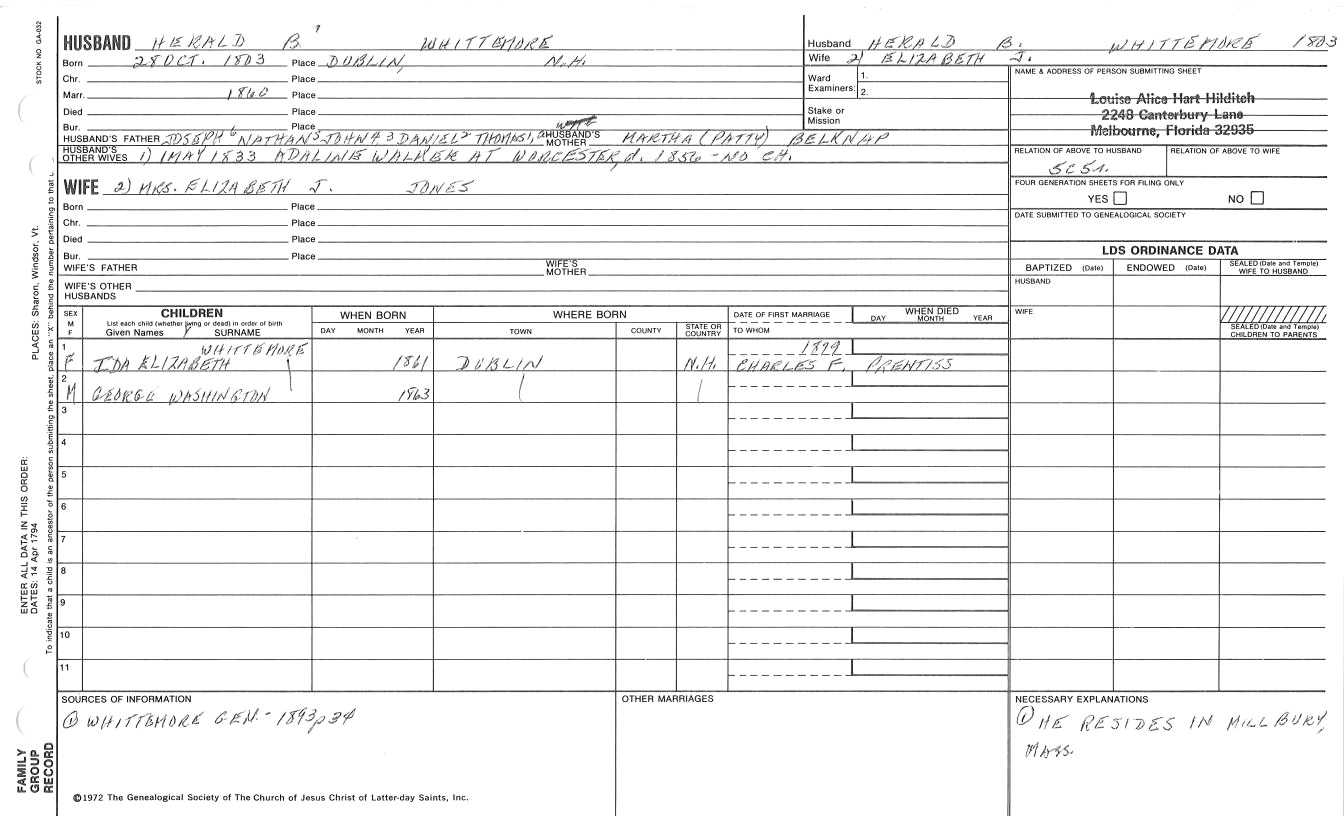 STOCK NO GA-032
HUSBAND HERALD B. 7 WHITTEMORE
Born 28 OCT. 1803 Place DUBLIN, N.H.
Chr. Place
Marr. 1860 Place
Died Place
Bur. Place
HUSBAND'S FATHER JOSEPH 6 NATHAN 5 JOHN 4 3 DANIEL 2 THOMAS 1 HUSBAND'S MOTHER MARTHA (PATTY) BELKNAP
HUSBAND'S OTHER WIVES 1) 1 MAY 1833 ADALINE WALKER AT WORCESTER, d. 1856 - NO CH.
WIFE 2) MRS. ELIZABETH J. JONES
Born Place
Chr. Place
Died Place
Bur. Place
WIFE'S FATHER WIFE'S MOTHER
WIFE'S OTHER HUSBANDS
Husband HERALD B. WHITTEMORE 1803
Wife 2) ELIZABETH J.
Ward Examiners: 1.
2.
Stake or Mission
NAME & ADDRESS OF PERSON SUBMITTING SHEET
Louise Alice Hart Hilditch
2248 Canterbury Lane
Melbourne, Florida 32935
RELATION OF ABOVE TO HUSBAND RELATION OF ABOVE TO WIFE
5C5r.
FOUR GENERATION SHEETS FOR FILING ONLY
YES NO
DATE SUBMITTED TO GENEALOGICAL SOCIETY
LDS ORDINANCE DATA
BAPTIZED (Date) ENDOWED (Date) SEALED (Date and Temple) WIFE TO HUSBAND
HUSBAND
WIFE
SEALED (Date and Temple) CHILDREN TO PARENTS
SEX M F CHILDREN WHEN BORN WHERE BORN DATE OF FIRST MARRIAGE WHEN DIED
List each child (whether living or dead) in order of birth
Given Names SURNAME DAY MONTH YEAR TOWN COUNTY STATE OR COUNTRY TO WHOM DAY MONTH YEAR
1 WHITTEMORE 1879
F IDA ELIZABETH 1861 DUBLIN N.H. CHARLES F. PRENTISS
2
M GEORGE WASHINGTON 1863
3
4
5
6
7
8
9
10
11
SOURCES OF INFORMATION
① WHITTEMORE GEN. - 1893 p34
OTHER MARRIAGES
NECESSARY EXPLANATIONS
① HE RESIDES IN MILLBURY,
MASS.
©1972 The Genealogical Society of The Church of Jesus Christ of Latter-day Saints, Inc.
PLACES: Sharon, Windsor, Vt.
ENTER ALL DATA IN THIS ORDER:
DATES: 14 Apr 1794
To indicate that a child is an ancestor of the person submitting the sheet, place an "X" behind the number pertaining to that
FAMILY
GROUP
RECORD